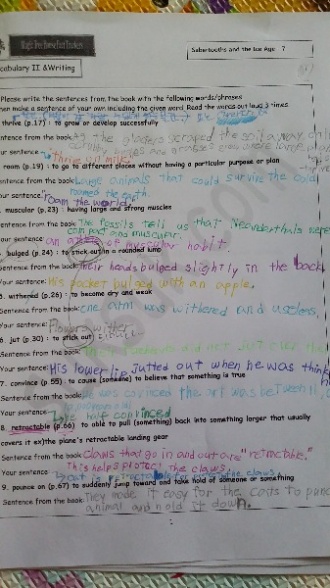 Magic Tree House Fact Trackers
Sabertooths and the Ice Age 7
cabulary II &Writing
Please write the sentences from the book with the following words/phrases
en make a sentence of your own including the given word. Read the words out loud 3 times
thrive (p.17) : to grow or develop successfully
entence from the book As the glaciers scraped the soil away only
our sentence: Thrive
room (p.19) : to go to different places without having a particular purpose or plan
entence from the book Large animals that could survive the cold
roamed the earth.
our sentence: roam the world
muscular (p.23) : having large and strong muscles
Sentence from the book: The fossils tell us that Neanderthals were
compact and muscular.
our sentence an of muscular habit.
bulged (p.24) : to stick out in a rounded lump
Sentence from the book Their heads bulged slightly in the back
Your sentence: His pocket bulged with an apple.
withered (p.26) : to become dry and weak
Sentence from the book: One arm was withered and useless,
Your sentence: Flowers wither
6. jut (p.30) : to stick out
Sentence from the book: did not jut over the
Your sentence: His lower lip jutted out when he was think
7. convince (p.55) : to cause (someone) to believe that something is true
Sentence from the book: was convinced the art was
Your sentence: half convinced
8. retractable (p.66) : to able to pull (something) back into something larger that usually
covers it ex)the plane's retractable landing gear
Sentence from the book: Claws that go in and out are "retractable."
This helps protect the claws.
Your sentence: claws
9. pounce on (p.67) to suddenly jump toward and take hold of someone or something
Sentence from the book: They made it easy for the cats to pounc
animal and hold it down.